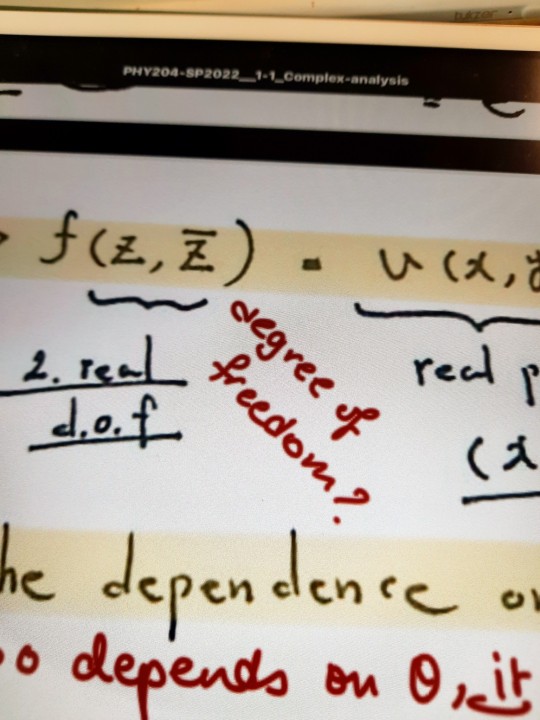 PHY204-SP2022__1-1_Complex-analysis
f(z, z̄) = u(x, y
2. real
d.o.f
degree of
freedom?
real p
(x
he dependence on
depends on θ, it